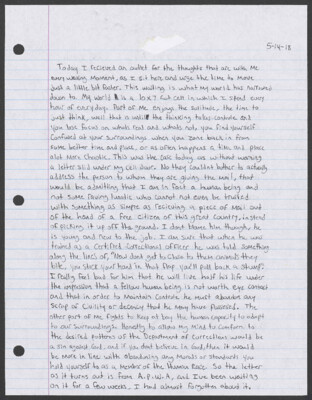 5-14-18
Today I received an outlet for the thoughts that are with me
every waking moment, as I sit here and urge the time to move
just a little bit faster. This waiting is what my world has narrowed
down to. My world is a 10x7 cell in which I spend every
hour of everyday. Part of me enjoys the solitude, the time to
just think, well that is until the thinking takes control and
you lose focus on whats real and whats not, you find yourself
confused at your surroundings when you zone back in from
some better time and place, or as often happens a time and place
alot more chaotic. This was the case today as without warning
a letter slid under my cell door. No they couldnt bother to actually
address the person to whom they are giving the mail, that
would be admitting that I am in fact a human being and
not some raving lunatic who cannot not even be trusted
with something as simple as receiving a piece of mail out
of the hand of a free citizen of this great country, instead
of picking it up off the ground. I dont blame him though, he
is young and new to the job. I am sure that when he was
trained as a certified correctional officer he was told something
along the lines of, "Now dont get to close to them convicts they
bite, you stick your hand in that trap you'll pull back a stump"
I really feel bad for him that he will live half his life under
the impression that a fellow human being is not worth eye contact
and that in order to maintain control he must abandon any
scrap of civility or decency that he may have possessed. The
other part of me fights to keep at bay the human capacity to adapt
to our surroundings. Honestly to allow my mind to conform to
the desired patterns of the Department of Corrections would be
a sin against God, and if you dont believe in God, then it would
be more in line with abandoning any morals or standards you
hold yourself to as a member of the Human Race. So the letter
as it turns out is from A.P.W.A, and I've been waiting
on it for a few weeks. I had almost forgotten about it.